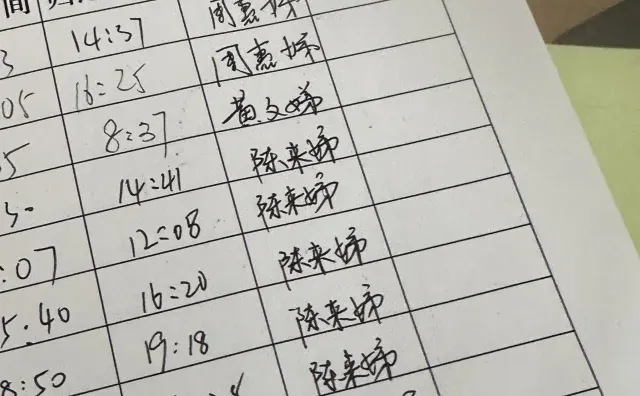 间
14:37 周惠娣
05 16:25 周惠娣
8:37 黄文娣
14:41 陈来娣
:07 12:08 陈来娣
5:40 16:20 陈来娣
8:50 19:18 陈来娣
陈来娣